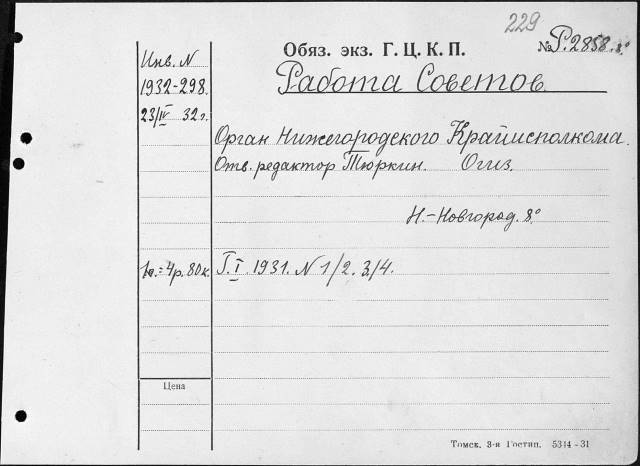 229
Обяз. экз. Г. Ц. К. П.
№ Р.2858. 8°
Инв. N
1932-298.
23/IV 32 г.
Работа Советов.
Орган Нижегородского Крайисполкома.
Отв. редактор Тюркин. Огиз.
Н.-Новгород. 8°
= 4р. 80к.
Г. I. 1931. N 1/2. 3/4.
Цена
Томск. 3-я Гостип. 5314-31